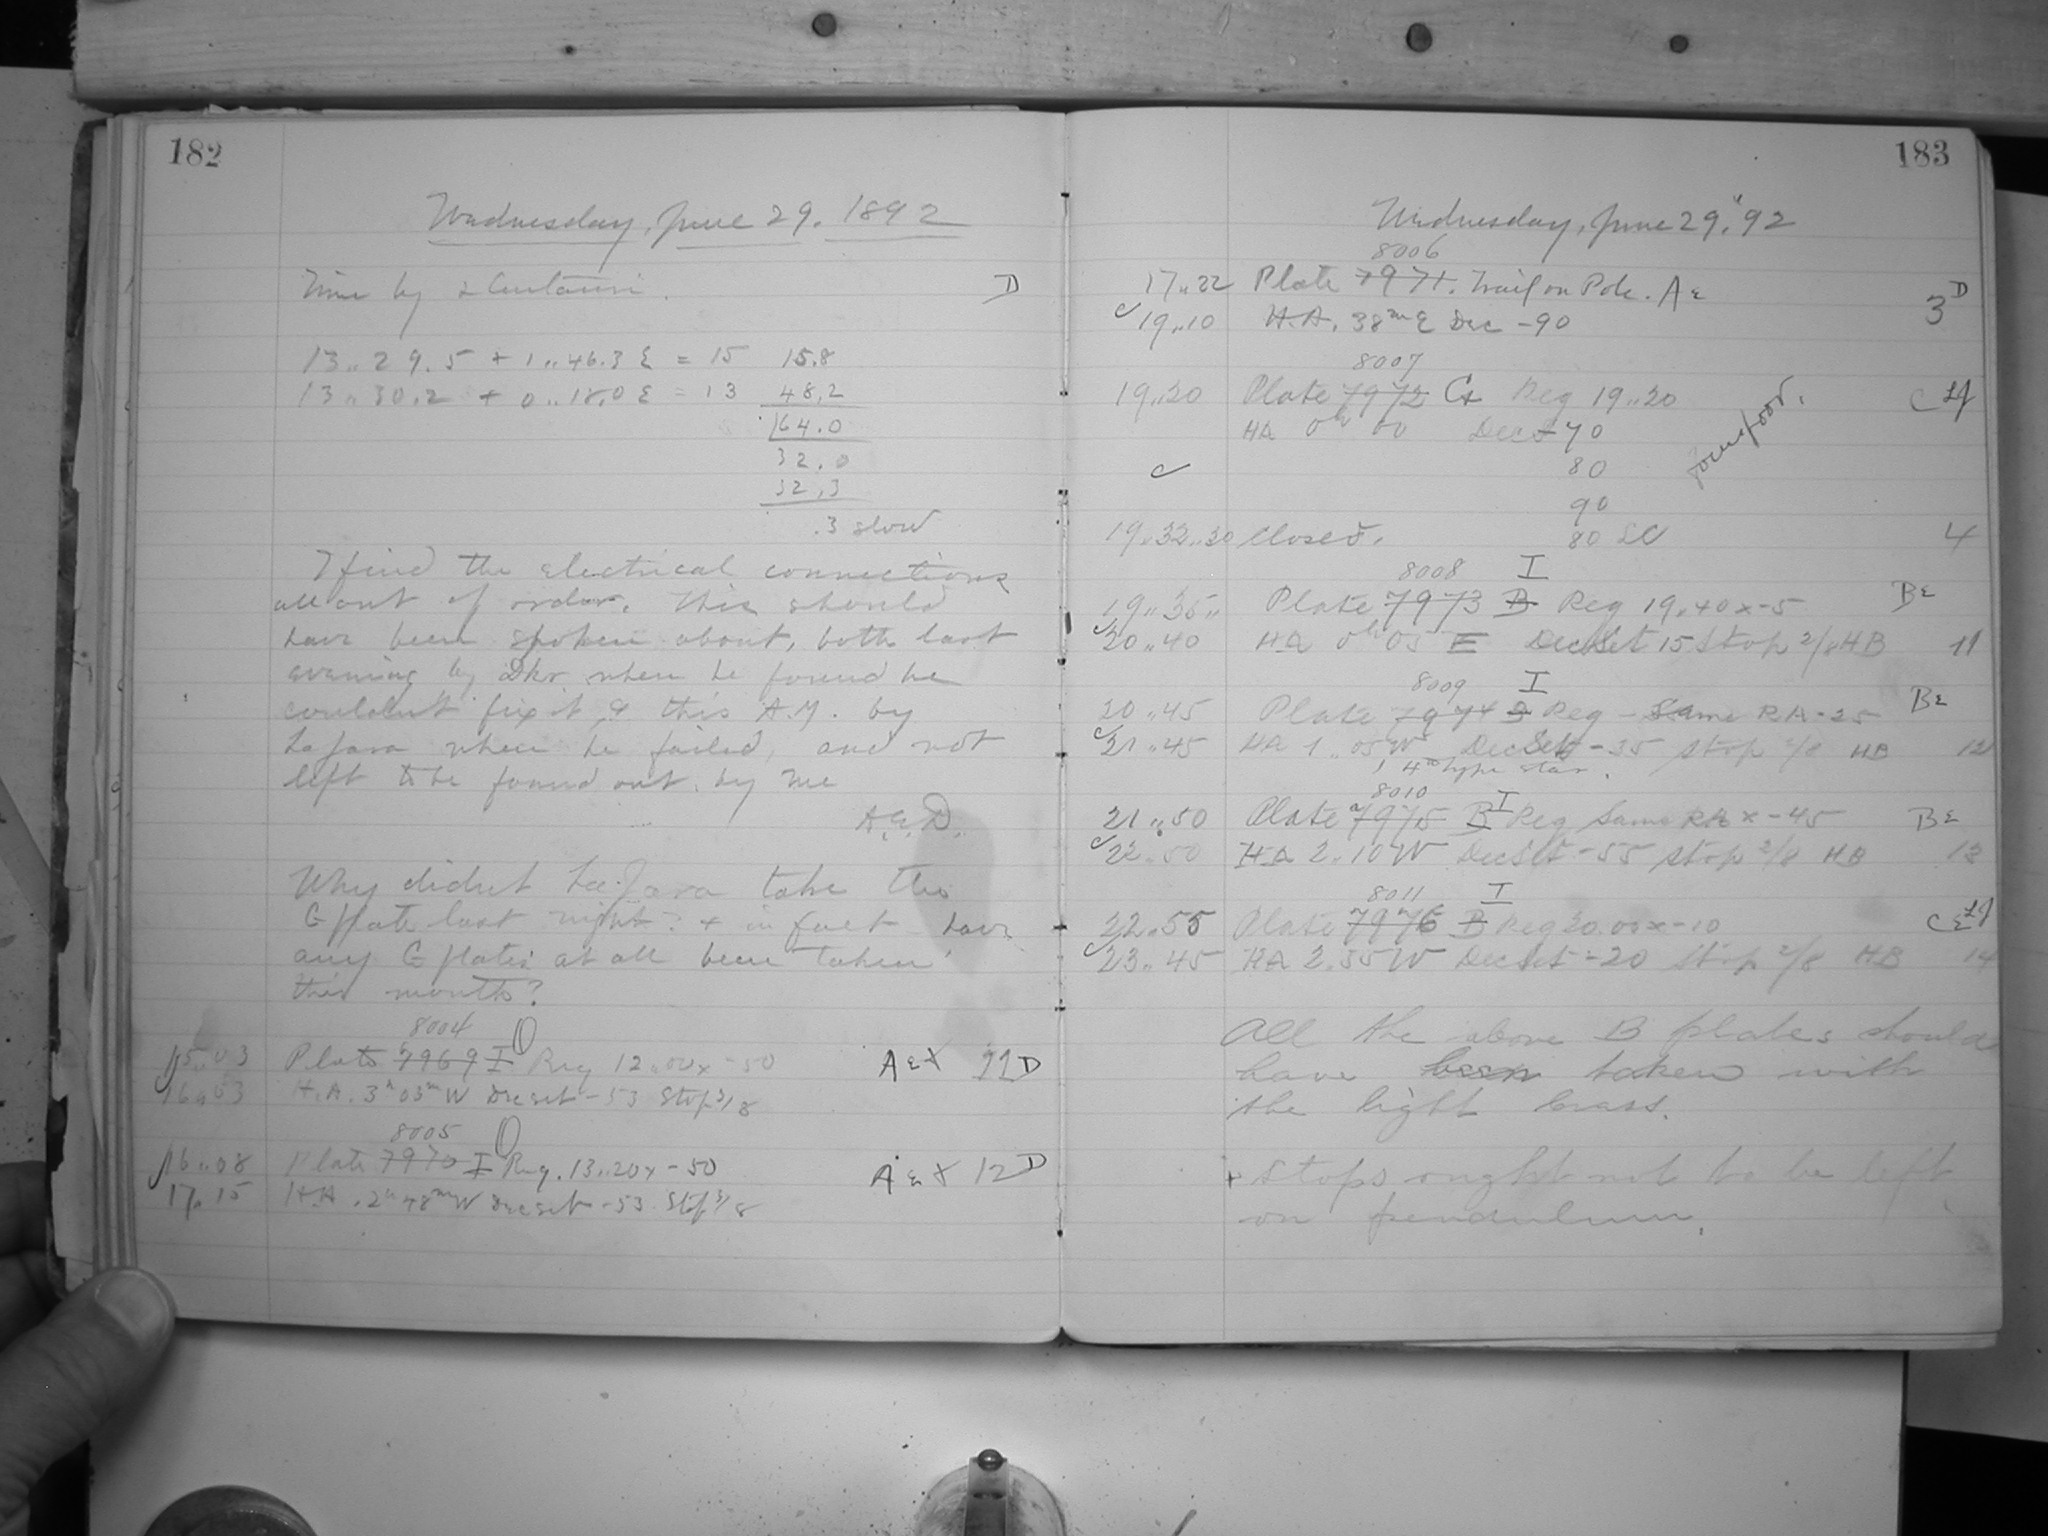 182
Wednesday, June 29. 1892
Time by α Centauri. D
13,,29.5 + 1,,46.3 E = 15 15.8
13,,30.2 + 0,,18.0 E = 13 48.2
164.0
32.0
32.3
.3 slow
I find the electrical connections
all out of order. This should
have been spoken about, both last
evening by Dkr when he found he
couldnt fix it, & this A.M. by
LaJara when he failed, and not
left to be found out by me
A.E.D.
Why didnt LaJara take the
G plate last night? & in fact have
any G plates at all been taken
this month?
8004
15,,03 Plate 7969 I Reg 12,,00 x -50 AE+ 11 D
16,,03 H.A. 3h 03m W Dec set -53 Stop 3/8
8005
16,,08 Plate 7970 I Reg. 13,,20 x -50 AE+ 12 D
17,,15 H.A. 2h 48m W Dec set -53 Stop 3/8
183
Wednesday, June 29, "92
8006
17,,22 Plate 7971. Trail on Pole. AE 3 D
19,,10 H.A. 38m E Dec -90
8007
19,,20 Plate 7972 Reg 19,,20 C LJ
HA 0h 00 Dec -70
80
focus poor.
90
19,,32,,30 Closed. 80 4
8008 I
19,,35,, Plate 7973 B Reg 19,,40 x -5 BE
20,,40 HA 0h 05 E Dec Set 15 Stop 2/8 HB 11
8009 I
20,,45 Plate 7974 B Reg - Same RA -25 BE
21,,45 HA 1,,05 W Dec Set -35 stop 2/8 HB 12
1 4th type star.
8010 I
21,,50 Plate 7975 B Reg Same RA x -45 BE
22,,50 HA 2,,10 W Dec Set -55 stop 2/8 HB 13
8011 I
22,,55 Plate 7976 B Reg 20,,00 x -10 CE LJ
23,,45 HA 2,,55 W Dec Set -20 stop 2/8 HB 14
All the above B plates should
have been taken with
the light brass.
+ stops ought not to be left
on pendulum.